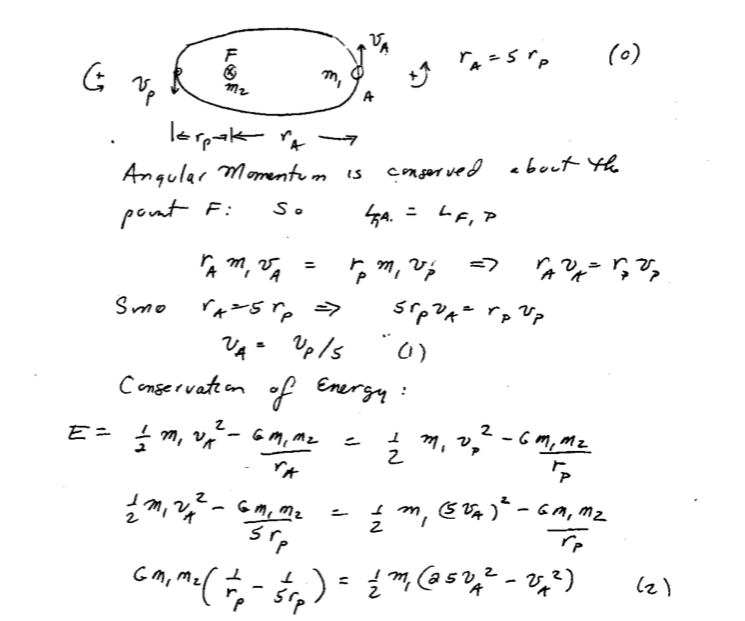 v_A
F
r_A = 5 r_p (0)
v_p
m_2
m_1
A
r_p r_A
Angular Momentum is conserved about the
point F: So L_FA. = L_F, P
r_A m_1 v_A = r_p m_1 v_p => r_A v_A = r_p v_p
r_A = 5 r_p => 5 r_p v_A = r_p v_p
v_A = v_p/5 (1)
Conservation of Energy:
E = 1/2 m_1 v_A^2 - G m_1 m_2 / r_A = 1/2 m_1 v_p^2 - G m_1 m_2 / r_p
1/2 m_1 v_A^2 - G m_1 m_2 / 5 r_p = 1/2 m_1 (5 v_A)^2 - G m_1 m_2 / r_p
G m_1 m_2 (1/r_p - 1/5r_p) = 1/2 m_1 (25 v_A^2 - v_A^2) (2)